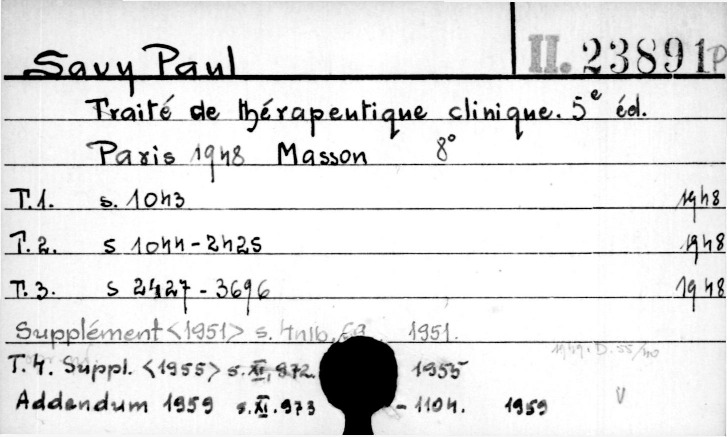 Savy Paul II. 23891P
Traité de thérapeutique clinique. 5e éd.
Paris 1948 Masson 8°
T.1. s. 1043 1948
T.2. s 1044-2425 1948
T.3. s 2427-3696 1948
Supplément <1951> s. 4nlb, 69 1951.
T.4. Suppl. <1955> s. XI, 972. 1955
Addendum 1959 s. XI. 973 - 1104. 1959 V